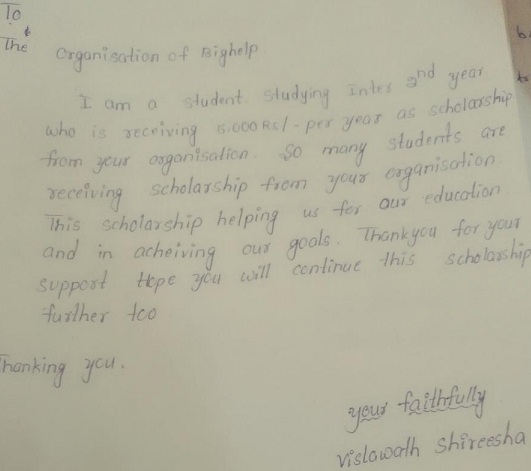 To
The Organisation of Bighelp
I am a student. studying Inter 2nd year
who is receiving 5.000 Rs/- per year as scholarship
from your organisation. So many students are
receiving scholarship from your organisation.
This scholarship helping us for our education
and in acheiving our goals. Thankyou for your
support Hope you will continue this scholarship
further too
Thanking you.
your faithfully
Vislawath Shireesha